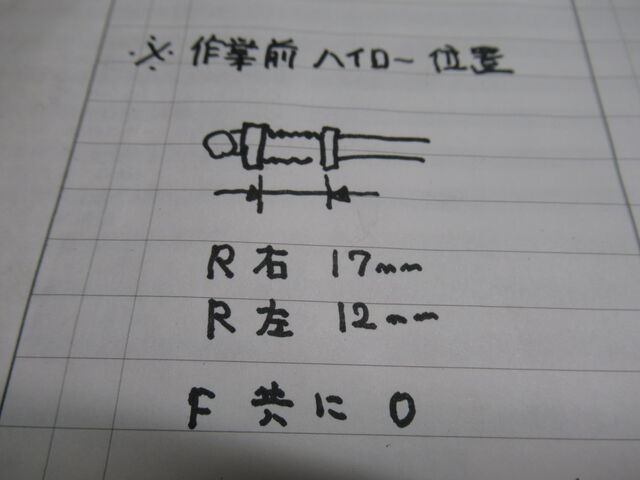 ※ 作業前 ハイロー 位置
R 右 17mm
R 左 12mm
F 共に 0